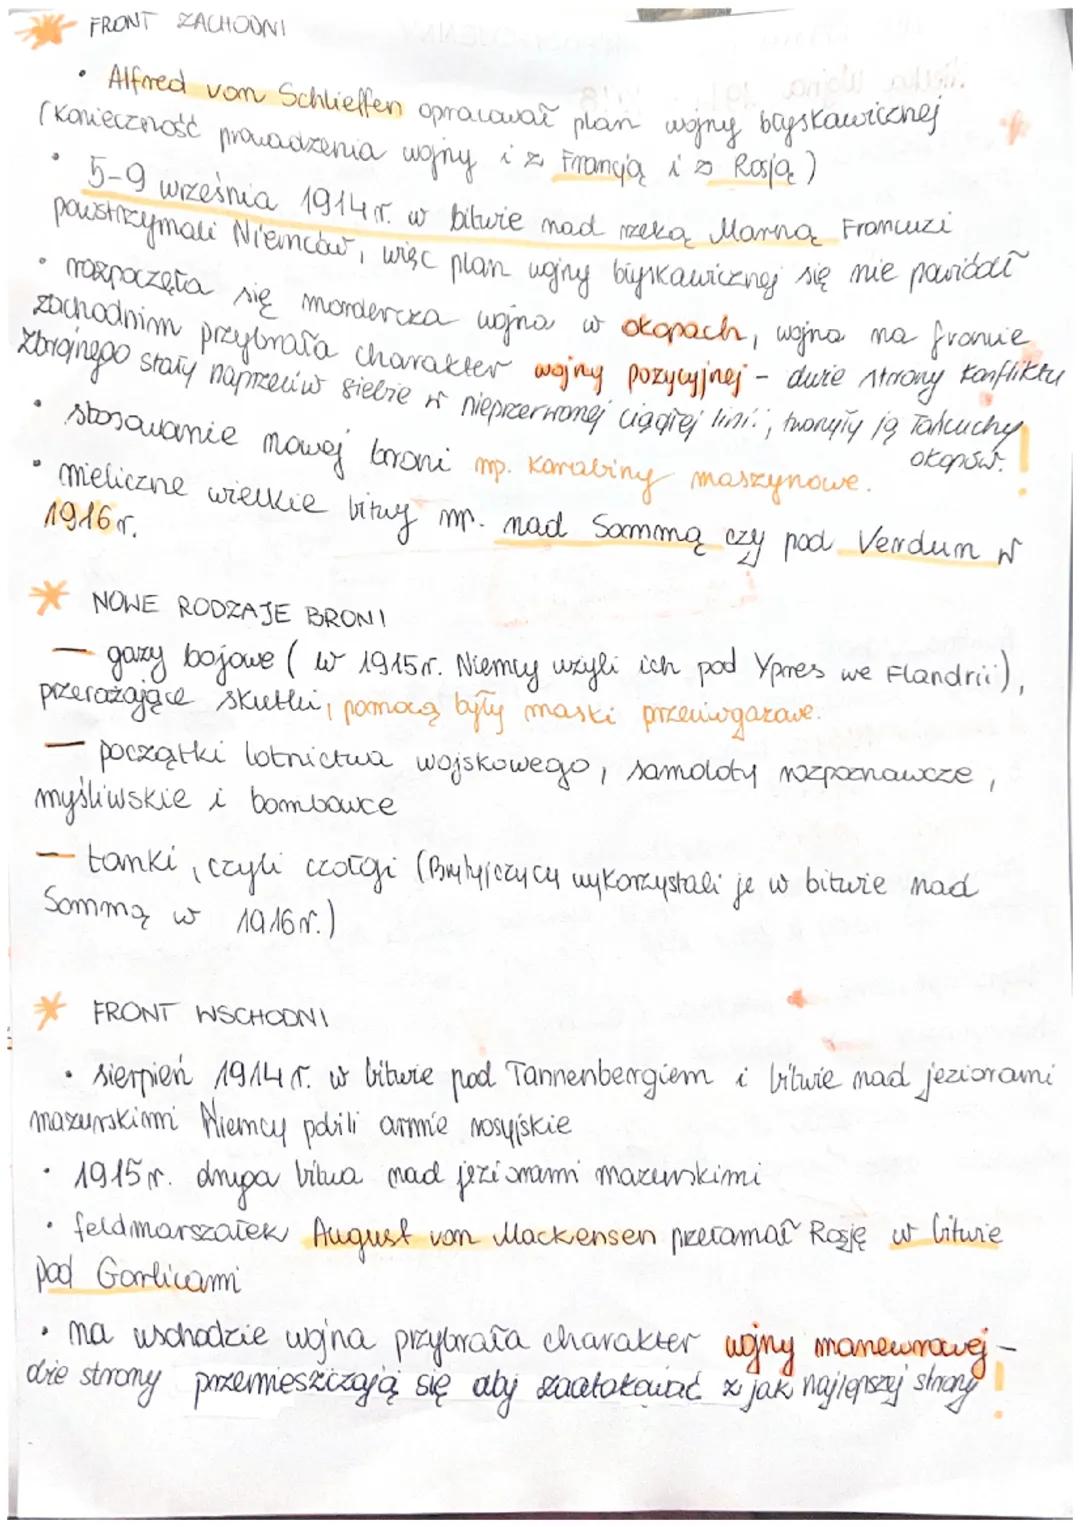 FRONT ZACHODNI
• Alfred von Schlieffen opracował plan wojny błyskawicznej
(konieczność prowadzenia wojny i z Francją i z Rosją)
• 5-9 września 1914 r. w bitwie nad rzeką Marną Francuzi
powstrzymali Niemców, więc plan wojny błyskawicznej się nie powiódł
• rozpoczęła się mordercza wojna w okopach, wojna na froncie
zachodnim przybrała charakter wojny pozycyjnej - dwie strony konfliktu
zbrojnego stały naprzeciw siebie w nieprzerwanej ciągłej linii, tworzyły ją łańcuchy
okopów. !
• stosowanie nowej broni np. karabiny maszynowe.
• nieliczne wielkie bitwy np. nad Sommą czy pod Verdun w
1916 r.
NOWE RODZAJE BRONI
— gazy bojowe ( w 1915 r. Niemcy użyli ich pod Ypres we Flandrii),
przerażające skutki, pomocą były maski przeciwgazowe.
— początki lotnictwa wojskowego, samoloty rozpoznawcze,
myśliwskie i bombowce
— tanki, czyli czołgi (Brytyjczycy wykorzystali je w bitwie nad
Sommą w 1916 r.)
FRONT WSCHODNI
• sierpień 1914 r. w bitwie pod Tannenbergiem i bitwie nad jeziorami
mazurskimi Niemcy pobili armie rosyjskie
• 1915 r. druga bitwa nad jeziorami mazurskimi
• feldmarszałek August von Mackensen przełamał Rosję w bitwie
pod Gorlicami
• na wschodzie wojna przybrała charakter wojny manewrowej -
dwie strony przemieszczają się aby zaatakować z jak najlepszej strony !